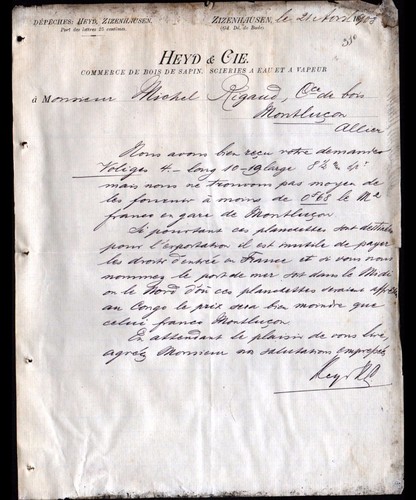 DÉPÊCHES: HEYD, ZIZENHAUSEN.
Port des lettres 25 centimes.
ZIZENHAUSEN, le 21 Avril 1903
(Gd. Dé. de Bade)
HEYD & CIE.
COMMERCE DE BOIS DE SAPIN. SCIERIES A EAU ET A VAPEUR
à Monsieur Michel Rigaud, Cce de bois
Montluçon
Allier
Nous avons bien reçu votre demande
Voliges 4.- long 10-19 large
mais nous ne trouvons pas moyen de
les fournir à moins de 0f68 le M2
franco en gare de Montluçon
Si pourtant ces planchettes sont destinées
pour l'exportation il est inutile de payer
les droits d'entrée en France et si vous nous
nommez le port de mer soit dans le Midi
ou le Nord d'où ces planchettes seraient
au Congo le prix sera bien moindre que
celui franco Montluçon.
En attendant le plaisir de vous lire,
agréez Monsieur nos salutations empressées
Heyd & Cie